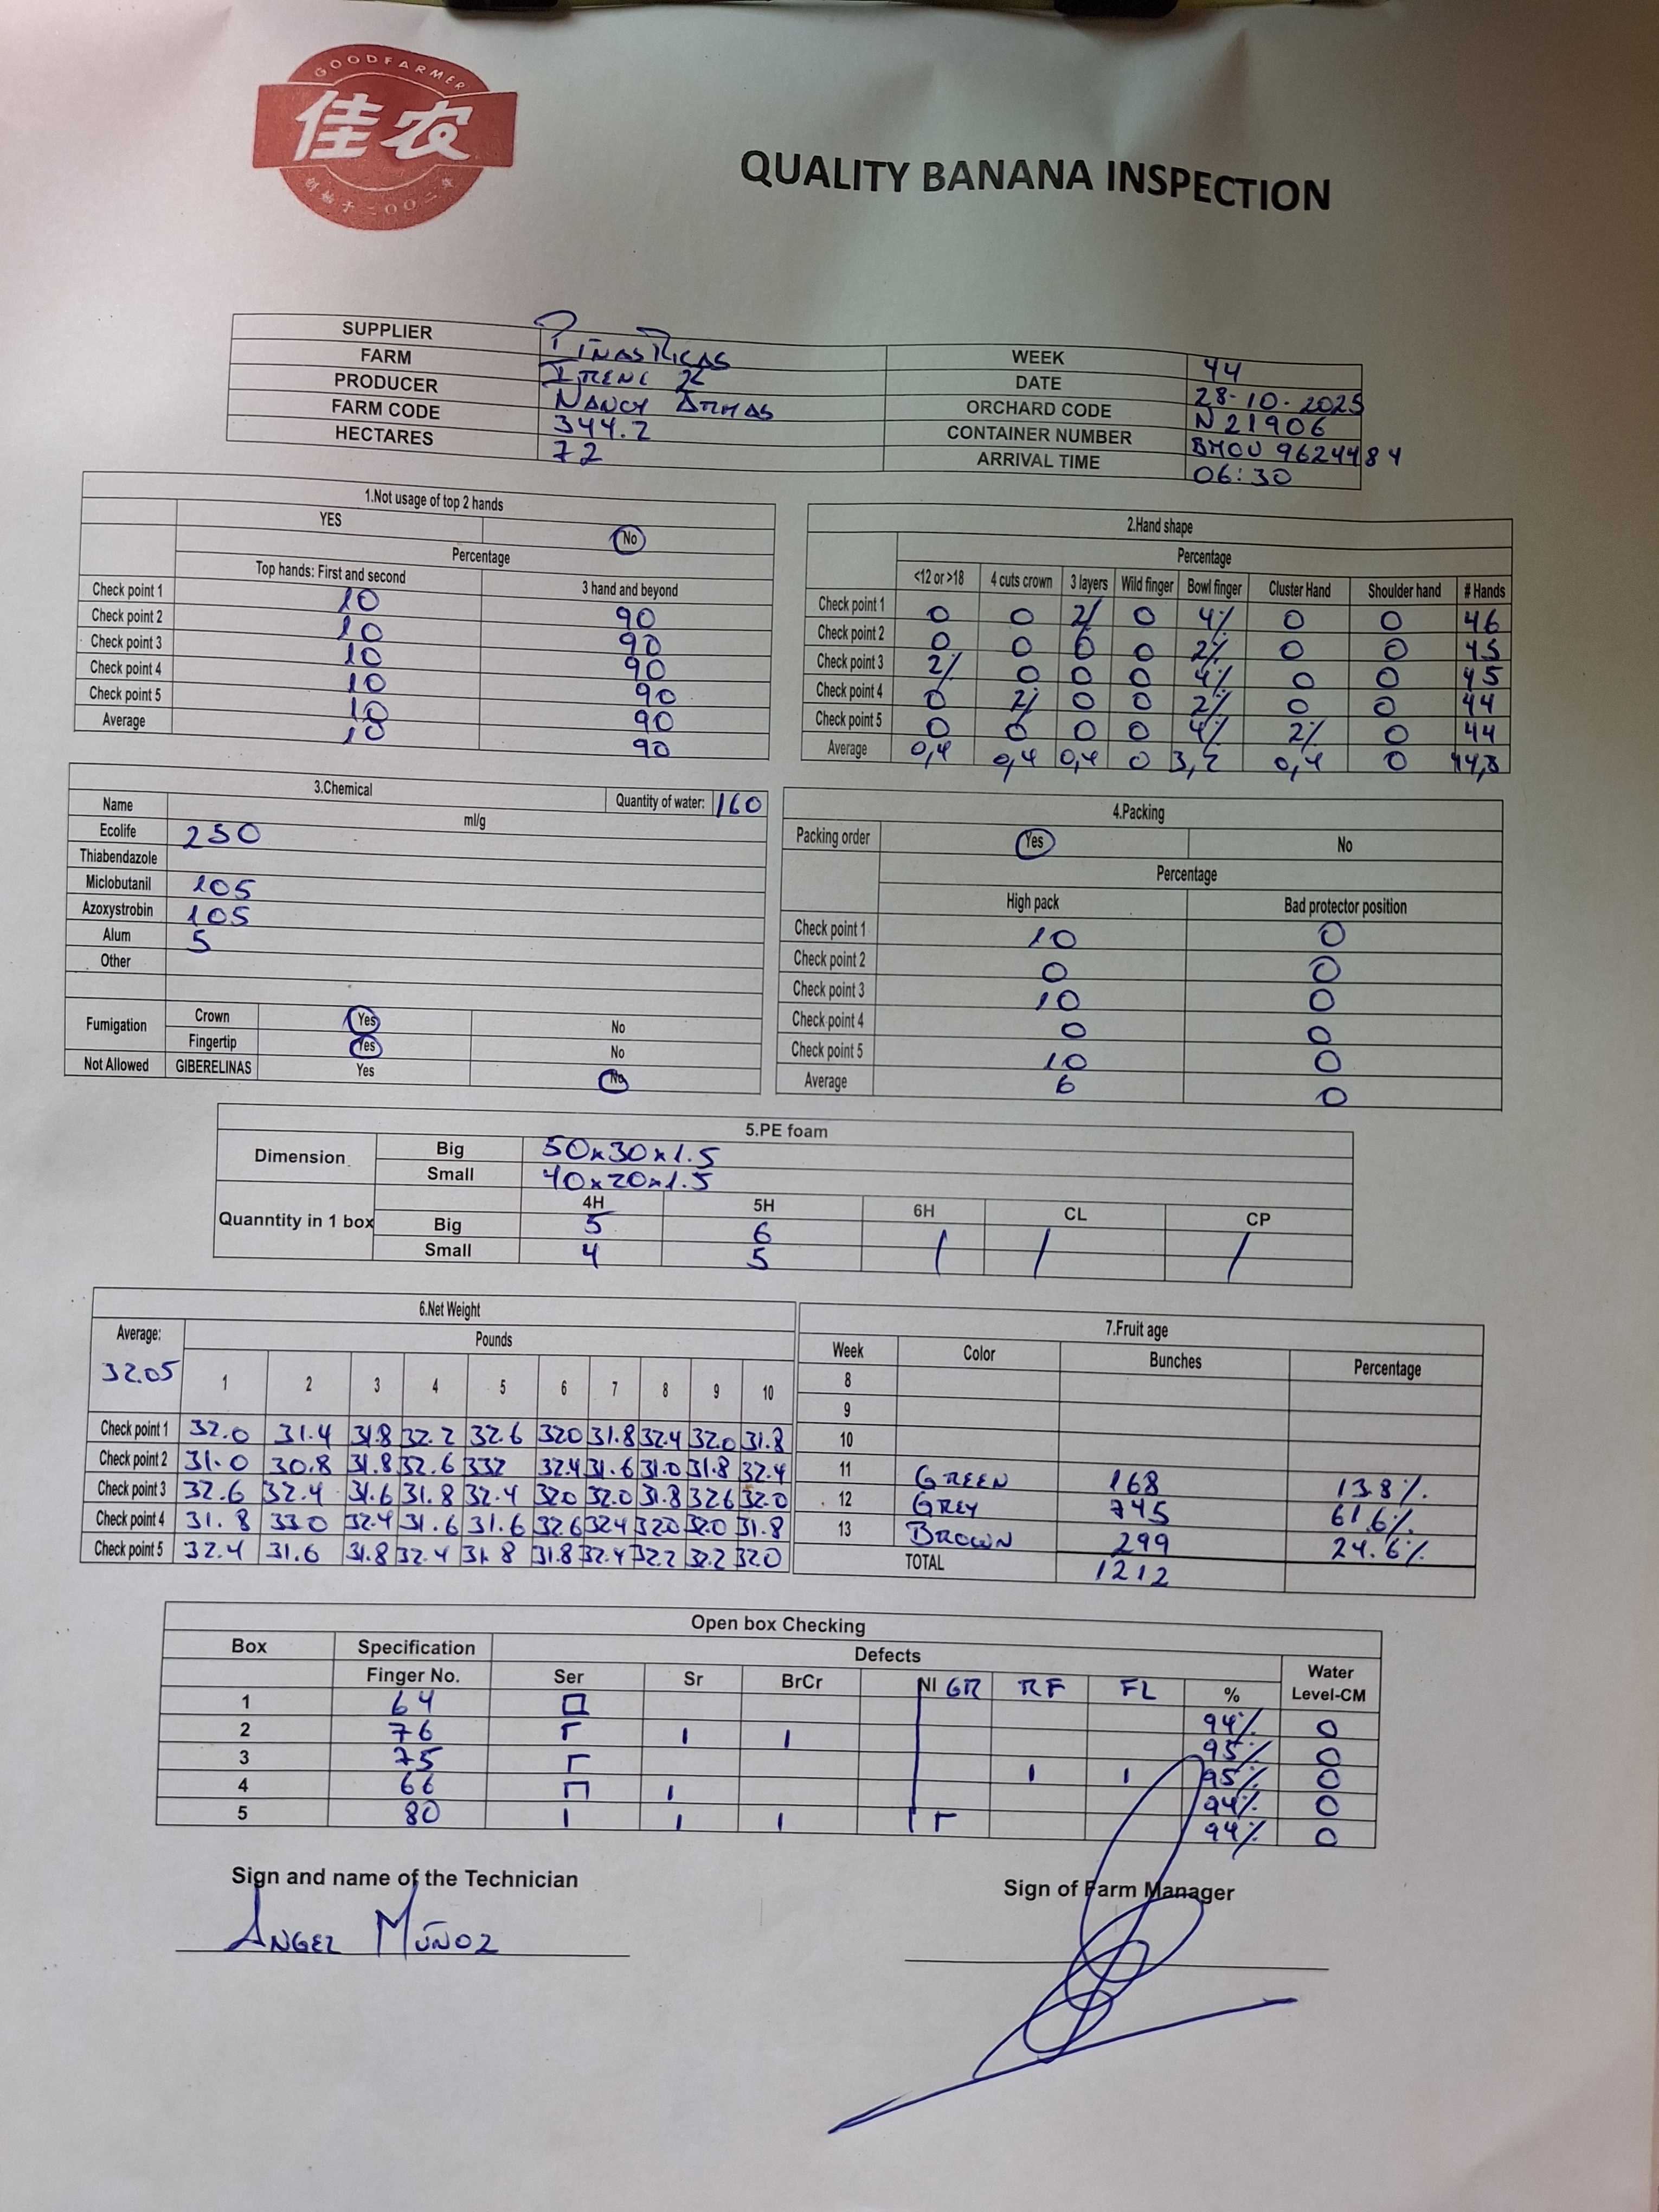 GOODFARMER
佳农
创始于二〇〇二年
QUALITY BANANA INSPECTION
SUPPLIER PIÑAS RICAS WEEK 44
FARM IRENE 2 DATE 28-10-2025
PRODUCER NANCY ARMAS ORCHARD CODE N21906
FARM CODE 344.2 CONTAINER NUMBER BMOU 9624484
HECTARES 72 ARRIVAL TIME 06:30
1.Not usage of top 2 hands
YES No
Percentage
Top hands: First and second 3 hand and beyond
Check point 1 10 90
Check point 2 10 90
Check point 3 10 90
Check point 4 10 90
Check point 5 10 90
Average 10 90
2.Hand shape
Percentage
<12 or >18 4 cuts crown 3 layers Wild finger Bowl finger Cluster Hand Shoulder hand # Hands
Check point 1 0 0 2/ 0 4% 0 0 46
Check point 2 0 0 0 0 2% 0 0 45
Check point 3 2% 0 0 0 4% 0 0 45
Check point 4 0 2% 0 0 2% 0 0 44
Check point 5 0 0 0 0 4% 2% 0 44
Average 0,4 0,4 0,4 0 3,2 0,4 0 44,8
3.Chemical Quantity of water: 160
Name ml/g
Ecolife 250
Thiabendazole
Miclobutanil 105
Azoxystrobin 105
Alum 5
Other
Fumigation Crown Yes No
Fingertip Yes No
Not Allowed GIBERELINAS Yes No
4.Packing
Packing order Yes No
Percentage
High pack Bad protector position
Check point 1 10 0
Check point 2 0 0
Check point 3 10 0
Check point 4 0 0
Check point 5 10 0
Average 6 0
5.PE foam
Dimension Big 50x30x1.5
Small 40x20x1.5
4H 5H 6H CL CP
Quanntity in 1 box Big 5 6 / / /
Small 4 5
6.Net Weight
Average: Pounds
32.05 1 2 3 4 5 6 7 8 9 10
Check point 1 32.0 31.4 31.8 32.2 32.6 320 31.8 32.4 32.0 31.8
Check point 2 31.0 30.8 31.8 32.6 332 32.4 31.6 31.0 31.8 32.4
Check point 3 32.6 32.4 31.6 31.8 32.4 32.0 32.0 31.8 326 32.0
Check point 4 31.8 33.0 32.4 31.6 31.6 32.6 324 320 32.0 31.8
Check point 5 32.4 31.6 31.8 32.4 31.8 31.8 32.4 32.2 32.2 32.0
7.Fruit age
Week Color Bunches Percentage
8
9
10
11 GREEN 168 13.8%
12 GREY 745 61.6%
13 BROWN 299 24.6%
TOTAL 1212
Open box Checking
Box Specification Defects Water
Finger No. Ser Sr BrCr NI GR RF FL % Level-CM
1 64 94% 0
2 76 95% 0
3 75 95% 0
4 66 94% 0
5 80 94% 0
Sign and name of the Technician Sign of Farm Manager
ANGEL MUÑOZ